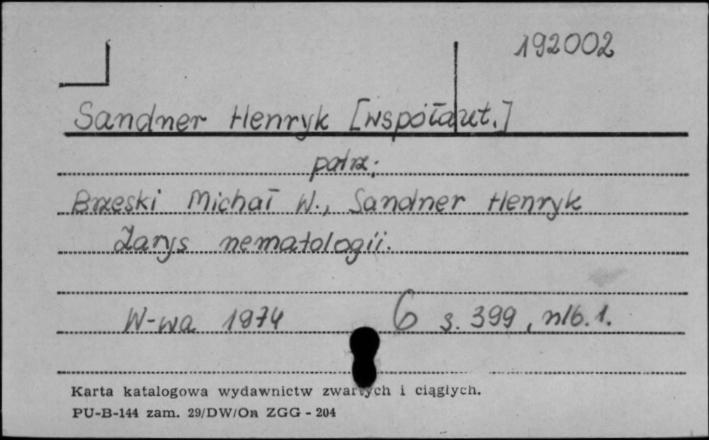 192002
Sandner Henryk [współaut.]
patrz:
Brzeski Michał W., Sandner Henryk
Zarys nematologii.
W-wa 1974 6 s. 399, nlb. 1.
Karta katalogowa wydawnictw zwartych i ciągłych.
PU-B-144 zam. 29/DW/On ZGG - 204